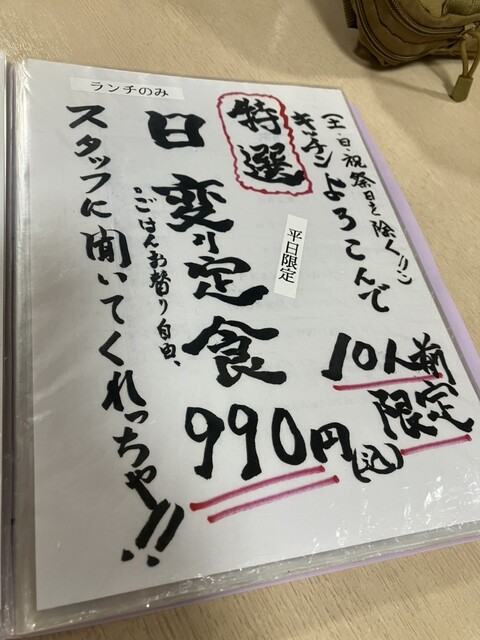 (土・日・祝祭日を除く!!)
キッチンよろこんで
10人前
限定
平日限定
特選
日変り定食
990円(込)
・ごはんお替り自由、
ランチのみ
スタッフに聞いてくれっちゃ!!